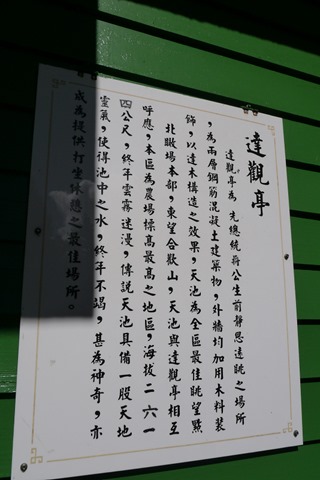 達觀亭
達觀亭為 先總統蔣公生前靜思遠眺之場所
，為兩層鋼筋混凝土建築物，外牆均加用木料裝
飾，以達木構造之效果，天池為全區最佳眺望點
北瞰場本部，東望合歡山，天池與達觀亭相互
呼應，本區為農場標高最高之地區，海拔二六一
四公尺，終年雲霧迷漫，傳說天池具備一股天地
靈氣，使得池中之水，終年不竭，甚為神奇，亦
成為提供打坐休憩之最佳場所。